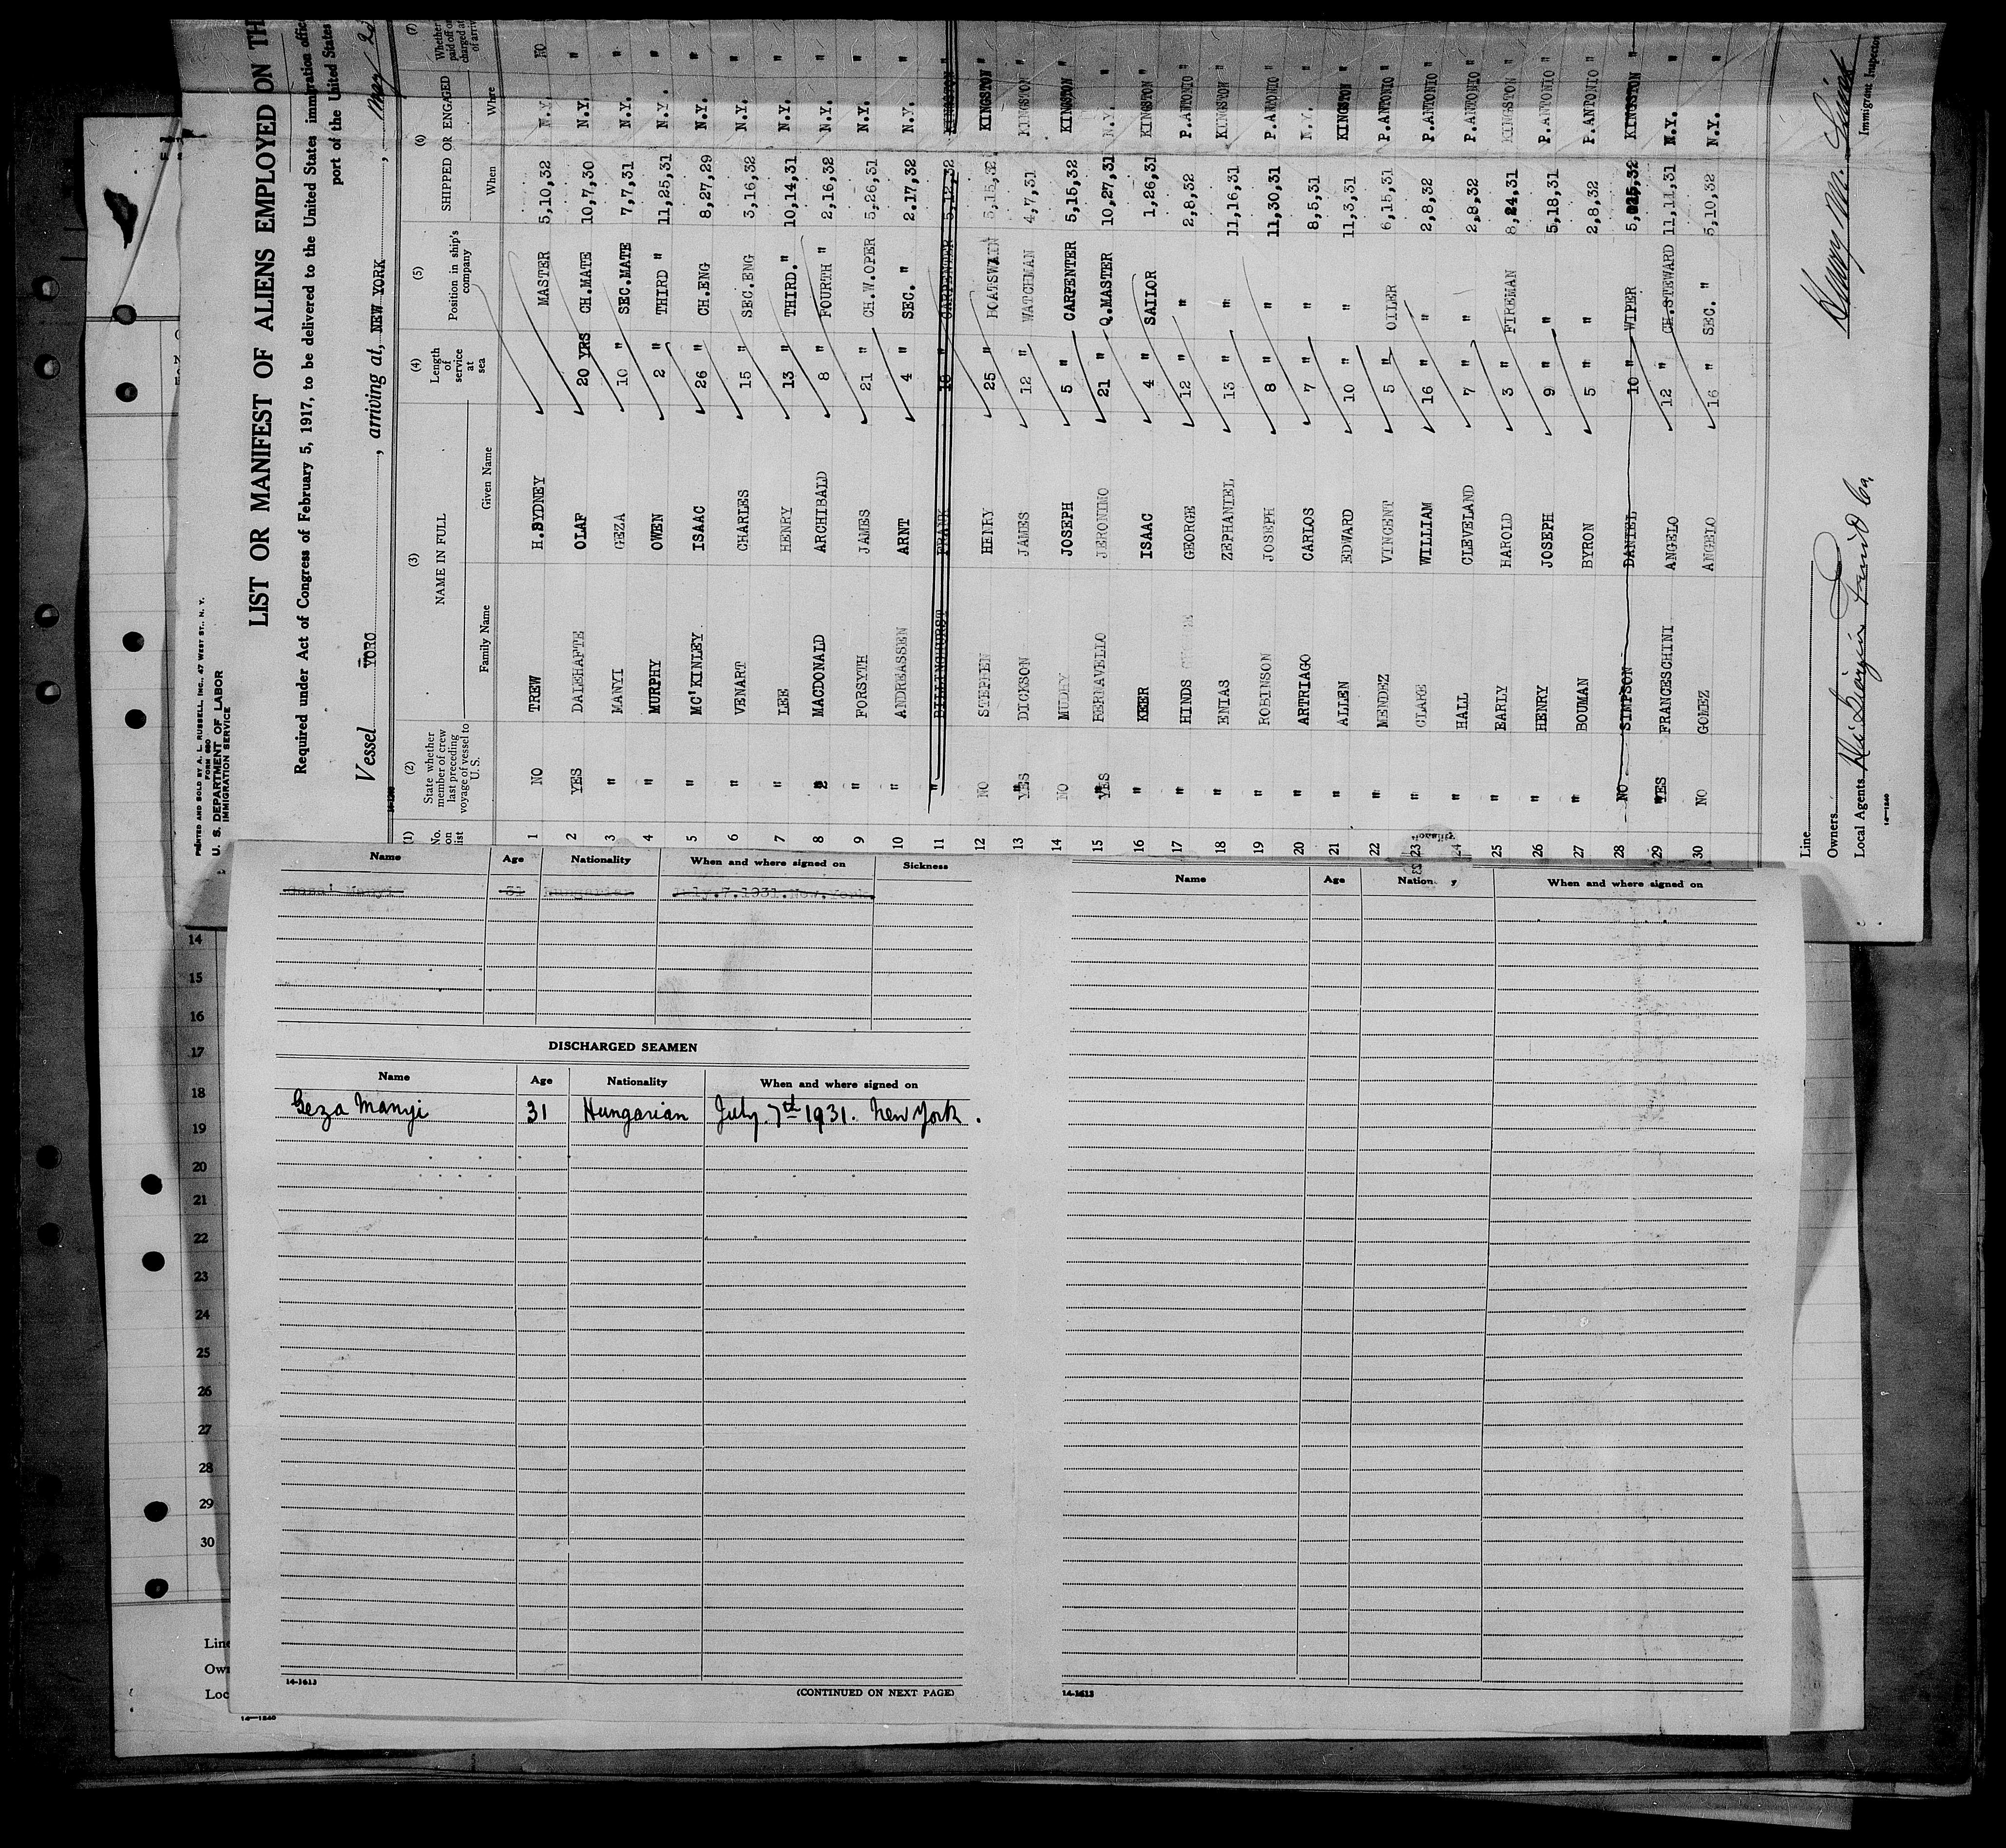 PRINTED AND SOLD BY A. L. RUSSELL, INC., 47 WEST ST., N. Y.
FORM 680
U. S. DEPARTMENT OF LABOR
IMMIGRATION SERVICE
LIST OR MANIFEST OF ALIENS EMPLOYED ON TH
Required under Act of Congress of February 5, 1917, to be delivered to the United States immigration offic
port of the United States
Vessel TORO, arriving at, NEW YORK, May 2
(1) (2) (3) (4) (5) (6) (7)
No. on list State whether member of crew last preceding voyage of vessel to U.S. NAME IN FULL Family Name Given Name Length of service at sea Position in ship's company SHIPPED OR ENGAGED When Where Whether paid off or
1 NO TREW H.SYDNEY MASTER 5,10,32 N.Y. NO
2 YES DALEHAFTE OLAF 20 YRS CH.MATE 10,7,30 N.Y. "
3 " MANYI GEZA 10 " SEC.MATE 7,7,31 N.Y. "
4 " MURPHY OWEN 2 " THIRD " 11,25,31 N.Y. "
5 " MC'KINLEY ISAAC 26 " CH.ENG 8,27,29 N.Y. "
6 " VENART CHARLES 15 " SEC.ENG 3,16,32 N.Y. "
7 " LEE HENRY 13 " THIRD." 10,14,31 N.Y. "
8 " MACDONALD ARCHIBALD 8 " FOURTH " 2,16,32 N.Y. "
9 " FORSYTH JAMES 21 " CH.W.OPER 5,26,31 N.Y. "
10 " ANDREASSEN ARNT 4 " SEC. " 2.17,32 N.Y. "
11 " BILLINGHURST FRANK 10 " CARPENTER 5,12,32 KINGSTON "
12 NO STEPHEN HENRY 25 " BOATSWAIN 5,15,32 KINGSTON "
13 YES DICKSON JAMES 12 " WATCHMAN 4,7,31 KINGSTON "
14 NO JOSEPH 5 " CARPENTER 5,15,32 KINGSTON "
15 YES BERNAVELLO JERONIMO 21 " Q.MASTER 10,27,31 N.Y. "
16 " KEER ISAAC 4 " SAILOR 1,26,31 KINGSTON "
17 " HINDS GEORGE 12 " " 2,8,32 P.ANTONIO "
18 " ENIAS ZEPHANIEL 13 " " 11,16,31 KINGSTON "
19 " ROBINSON JOSEPH 8 " " 11,30,31 P.ANTONIO "
20 " ARTRIAGO CARLOS 7 " " 8,5,31 N.Y. "
21 " ALLEN EDWARD 10 " " 11,3,31 KINGSTON "
22 " MENDEZ VINCENT 5 " OILER 6,15,31 P.ANTONIO "
23 " CLARE WILLIAM 16 " " 2,8,32 P.ANTONIO "
24 " HALL CLEVELAND 7 " " 2,8,32 P.ANTONIO "
25 " EARLY HAROLD 3 " FIREMAN 8,24,31 KINGSTON "
26 " HENRY JOSEPH 9 " " 5,18,31 P.ANTONIO "
27 " BOUMAN BYRON 5 " " 2,8,32 P.ANTONIO "
28 NO SIMPSON DANIEL 10 " WIPER KINGSTON "
29 YES FRANCESCHINI ANGELO 12 " CH.STEWARD 11,11,31 N.Y. "
30 NO GOMEZ ANGELO 16 " SEC. " 5,10,32 N.Y. "
Line
Owners
Local Agents
Immigrant Inspector
14—1240
Name Age Nationality When and where signed on Sickness
Geza Manyi 31 Hungarian July.7.1931.New.York.
DISCHARGED SEAMEN
Name Age Nationality When and where signed on
Geza Manyi 31 Hungarian July. 7th 1931. New York.
14-1613
(CONTINUED ON NEXT PAGE)
Name Age When and where signed on
14-1613
14
15
16
17
18
19
20
21
22
23
24
25
26
27
28
29
30
Line
Own
Loc
14—1240